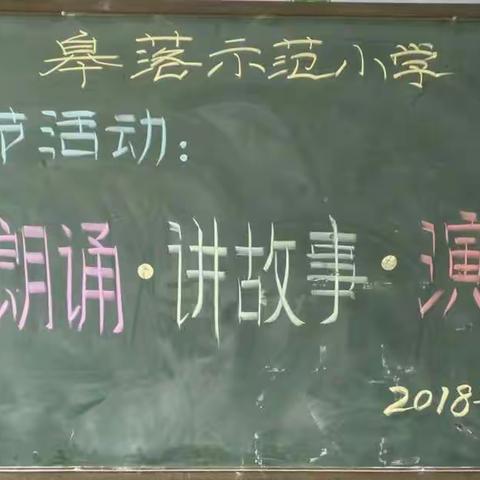 皋落示范小学
节活动：
朗诵·讲故事·演
2018-